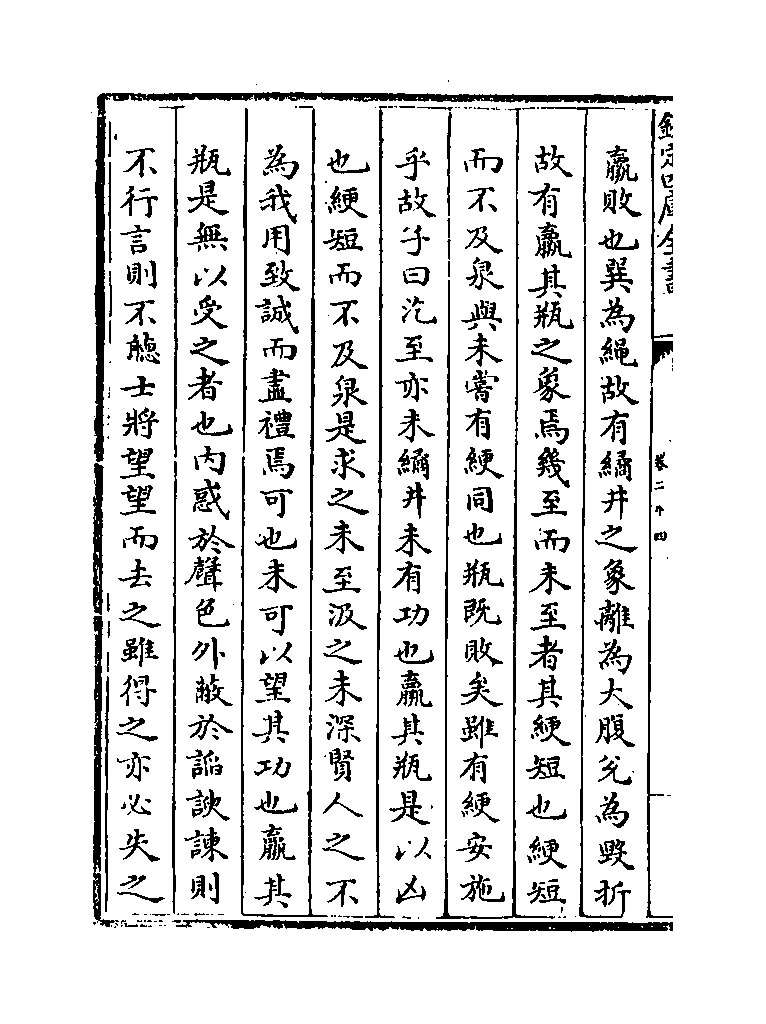 欽定四庫全書
卷二十四
羸敗也巽為繩故有繘井之象離為大腹兊為毀折
故有羸其瓶之象焉幾至而未至者其綆短也綆短
而不及泉與未嘗有綆同也瓶既敗矣雖有綆安施
乎故子曰汔至亦未繘井未有功也羸其瓶是以凶
也綆短而不及泉是求之未至汲之未深賢人之不
為我用致誠而盡禮焉可也未可以望其功也羸其
瓶是無以受之者也内惑於聲色外蔽於謟諛諫則
不行言則不聽士將望望而去之雖得之亦必失之